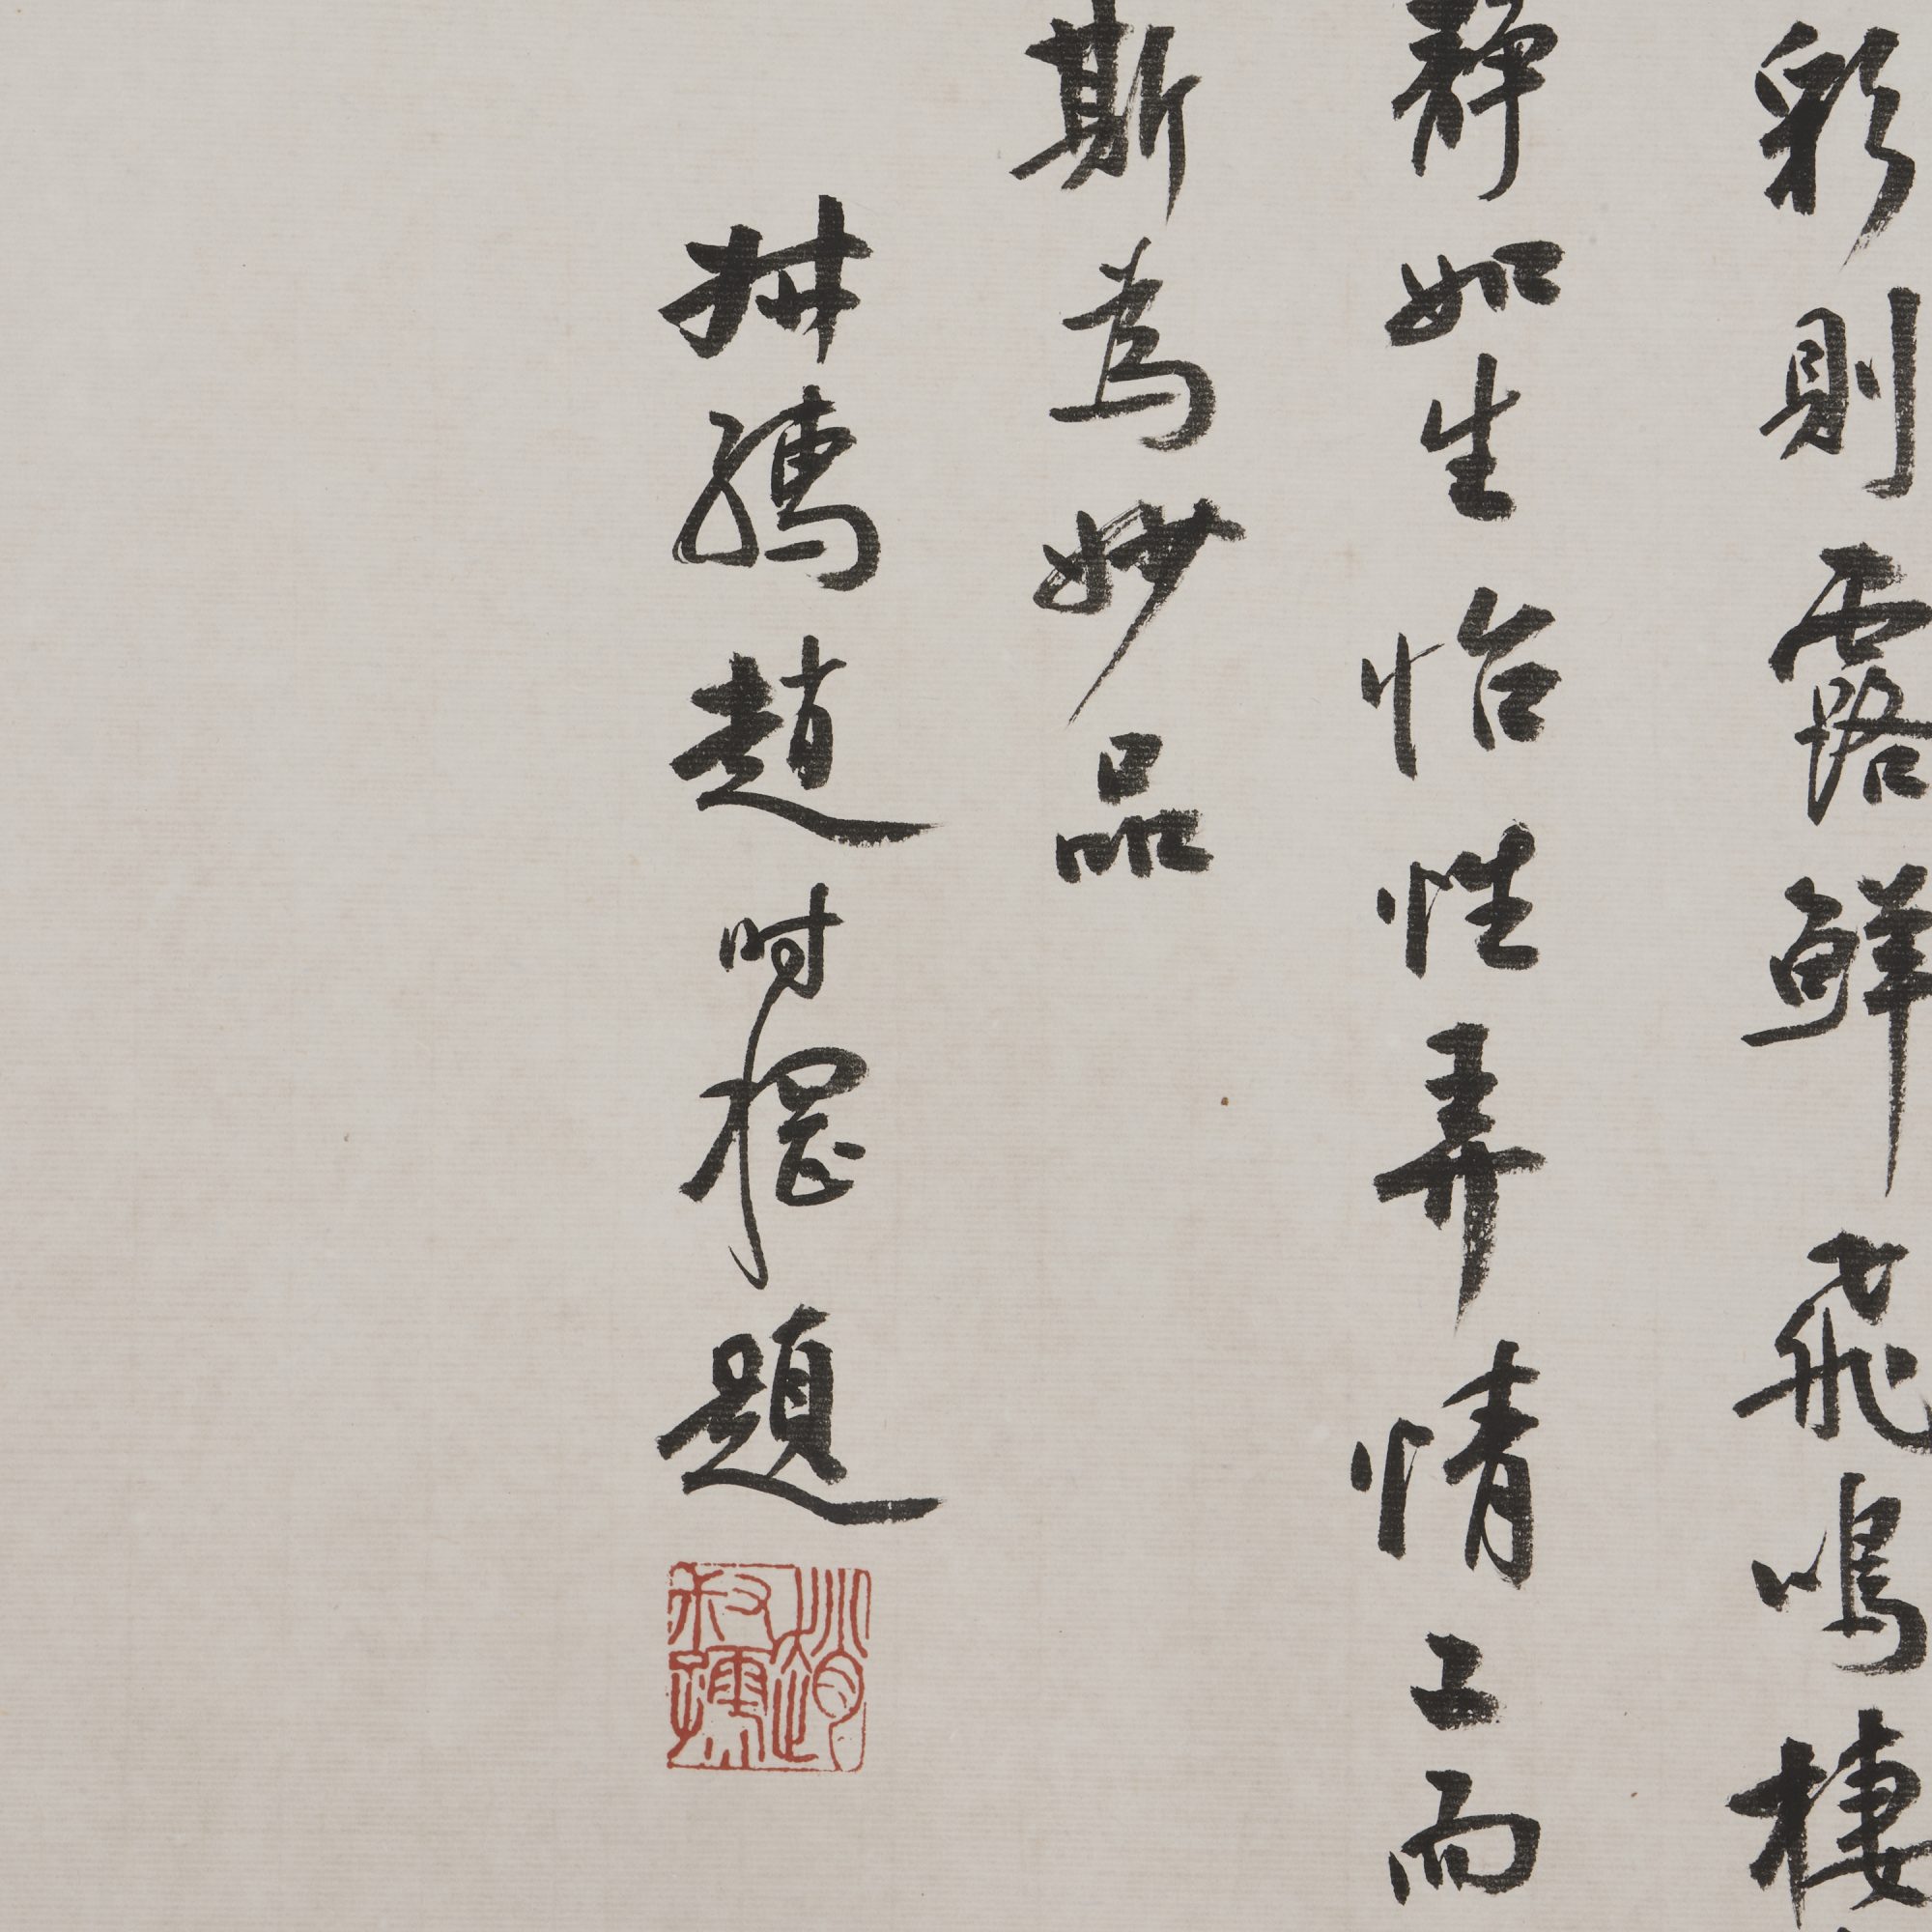 彩則露鮮飛鳴棲
靜如生怡性弄情工而
斯為妙品
叔孺趙時棡題
趙叔孺